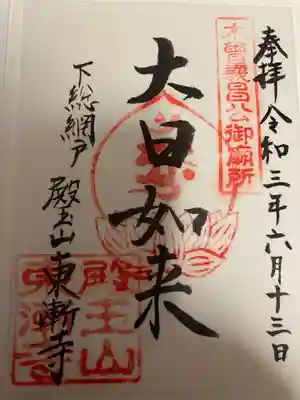 奉拝 令和三年六月十三日
木曽義昌公御廟所
大日如来
下総網戸 殿玉山 東漸寺
殿玉山
東漸寺